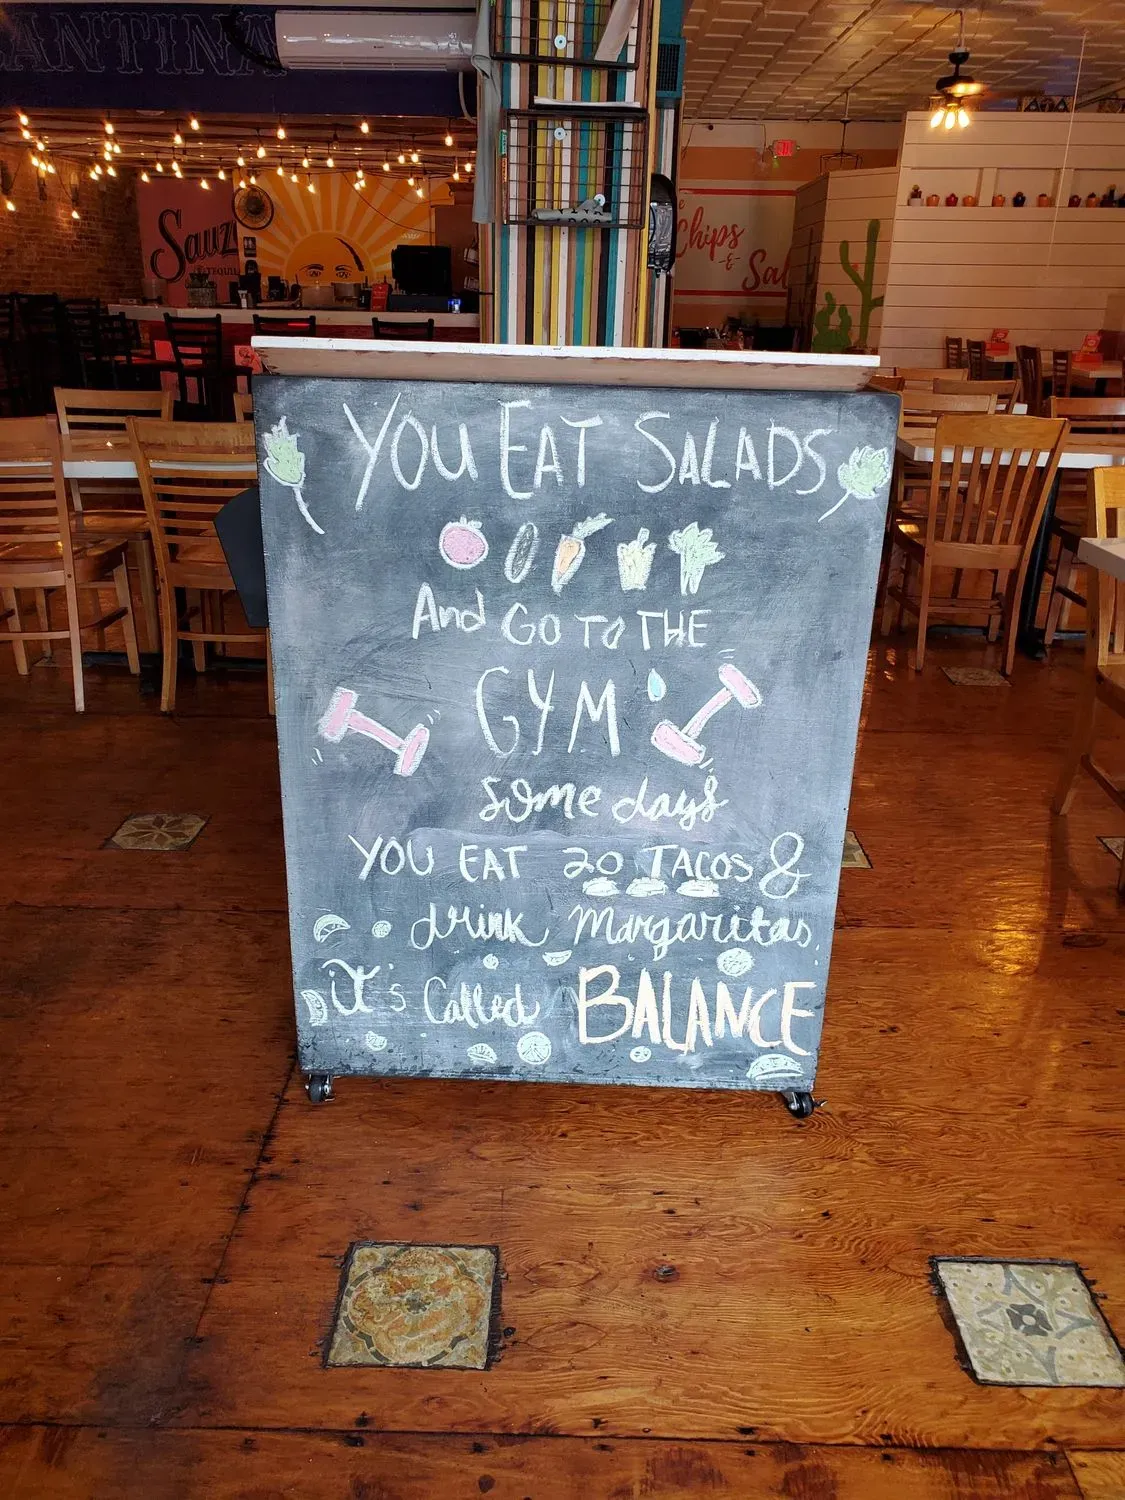 ANTINA
Sauz
TEQUI
Chips
&
Sal
YOU EAT SALADS
And GO TO THE
GYM
some days
YOU EAT 20 TACOS &
drink Margaritas.
iT's Called BALANCE